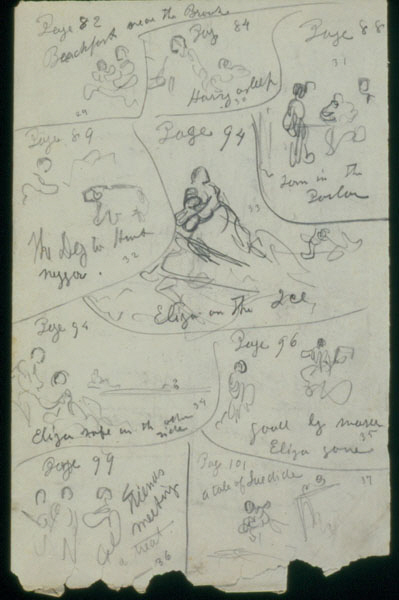 Page 82
Breakfast near the Brook
29
Pag 84
Harry asleep
30
Page 88
31
Tom in the
Parlor
Page 89
The Dog to Hunt
niggor.
32
Page 94
33
Eliza on the Ice,
Page 94
Eliza safe in the other
side
34
Page 96
by master
Eliza gone
35
Page 99
Friends
meeting
a treat
36
Pag 101
a tale of Suicide
37